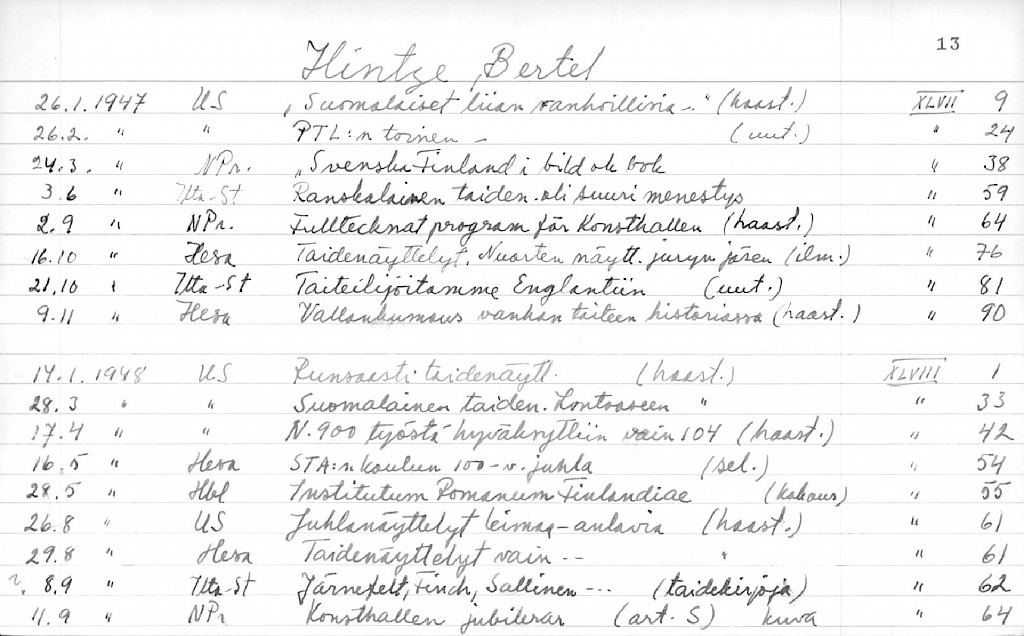 13
Hintze, Bertel
26.1. 1947 US „Suomalaiset liian vanhoillisia -." (haast.) XLVII 9
26.2. " " PTL:n toinen - (uut.) " 24
24.3. " NPr. „Svenska-Finland i bild ok bok " 38
3.6 " Ilta-St Ranskalainen taiden. oli suuri menestys " 59
2.9 " NPr. Fulltecknat program för Konsthallen (haast.) " 64
16.10 " Hesa Taidenäyttelyt, Nuorten näytt. juryn jäsen (ilm.) " 76
21.10 " Ilta-St Taiteilijoitamme Englantiin (uut.) " 81
9.11 " Hesa Vallankumous vanhan taiteen historiassa (haast.) " 90
14.1. 1948 US Runsaasti taidenäytt. (haast.) XLVIII 1
28.3 " " Suomalainen taiden. Lontooseen " " 33
17.4 " " N. 900 työstä hyväksyttiin vain 104 (haast.) " 42
16.5 " Hesa STA:n koulun 100-v. juhla (sel.) " 54
28.5 " Hbl Institutum Romanum Finlandiae (kokous) " 55
26.8 " US Juhlanäyttelyt leimaa-antavia (haast.) " 61
29.8 " Hesa Taidenäyttelyt vain -- " " 61
8.9 " Ilta-St Järnefelt, Finch, Sallinen --- (taidekirjoja) " 62
11.9 " NPr Konsthallen jubilerar (art. S) kuva " 64